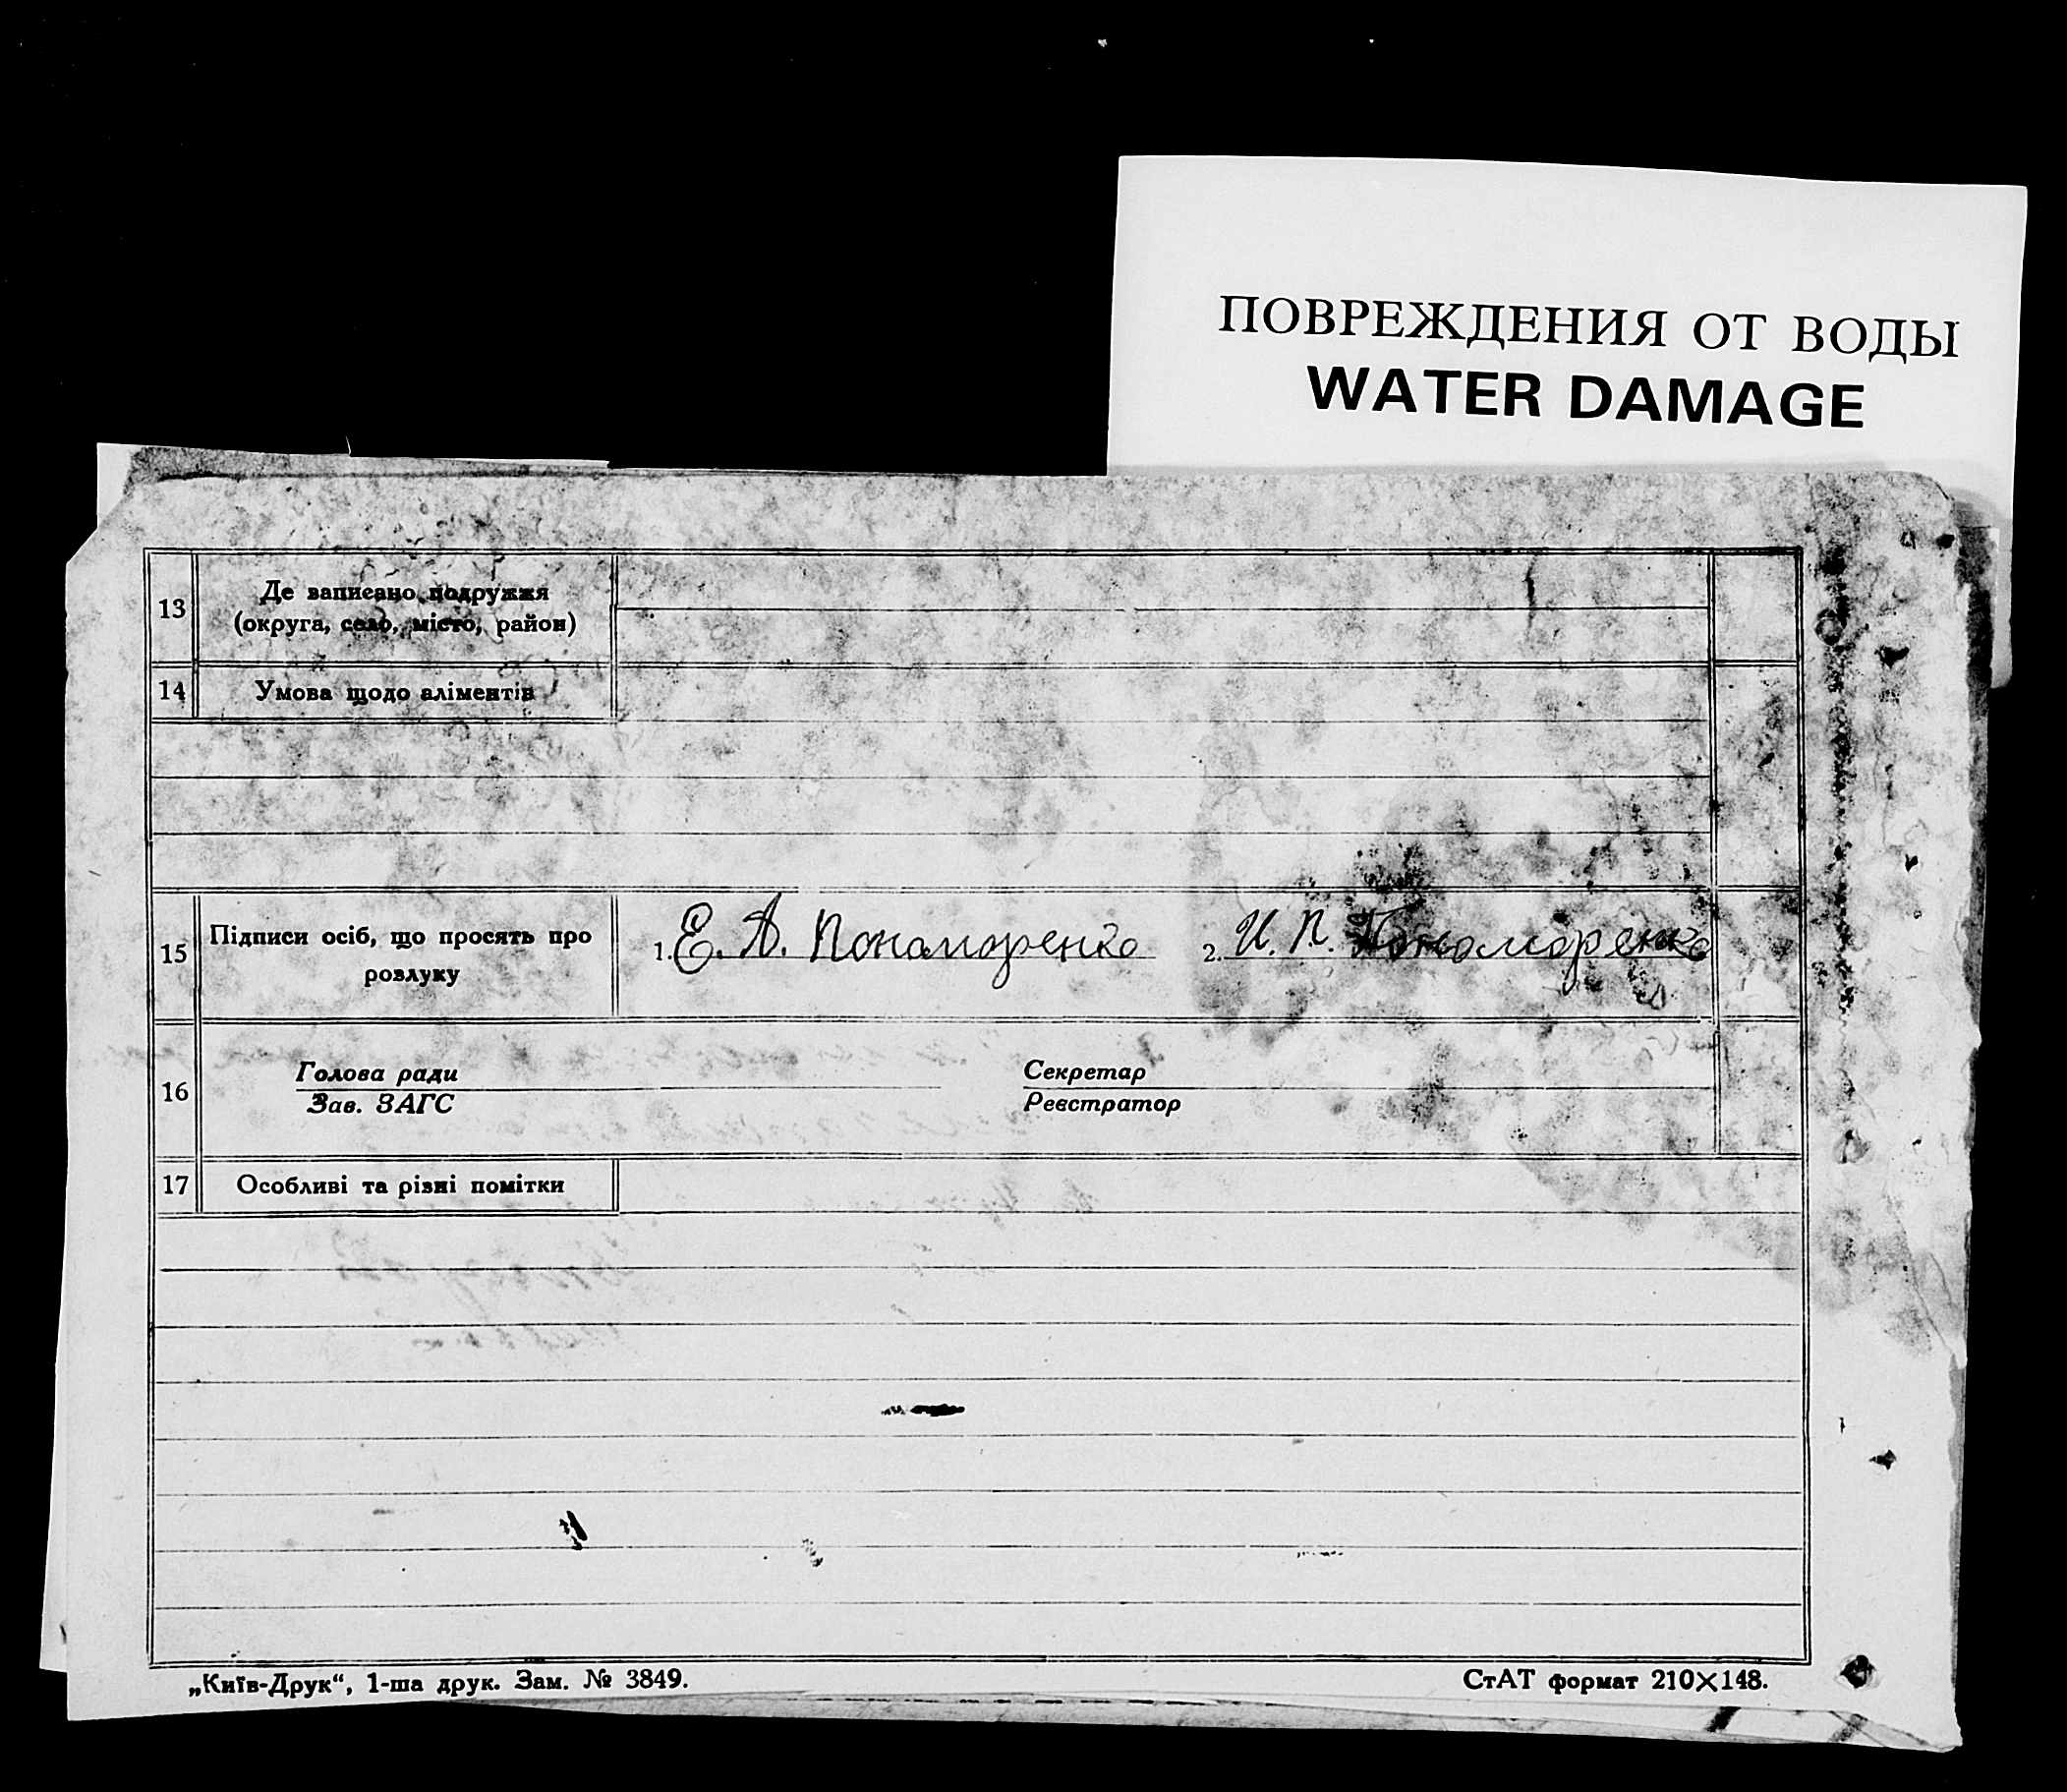 ПОВРЕЖДЕНИЯ ОТ ВОДЫ
WATER DAMAGE
13 Де записано подружжя
(округа, село, місто, район)
14 Умова щодо аліментів
15 Підписи осіб, що просять про
розлуку
1. Е. А. Пономаренко 2. И. П. Пономаренко
16 Голова ради Секретар
Зав. ЗАГС Реєстратор
17 Особливі та різні помітки
„Київ-Друк“, 1-ша друк. Зам. № 3849. СтАТ формат 210×148.